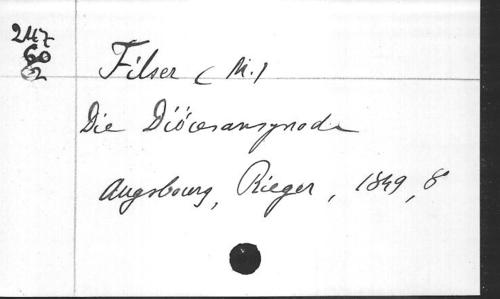 247
60
2
Filser (M.)
Die Diöcesansynode
Augsbourg, Rieger, 1849, 8°